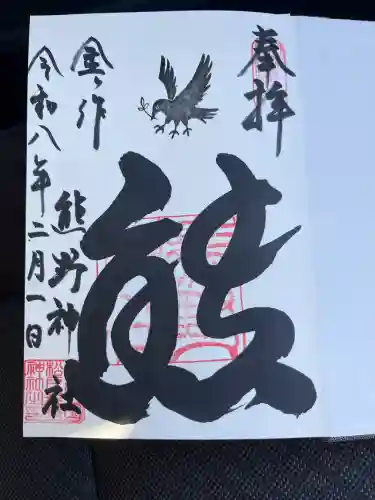 奉拝
熊
金ヶ作
熊野神社
令和八年二月一日